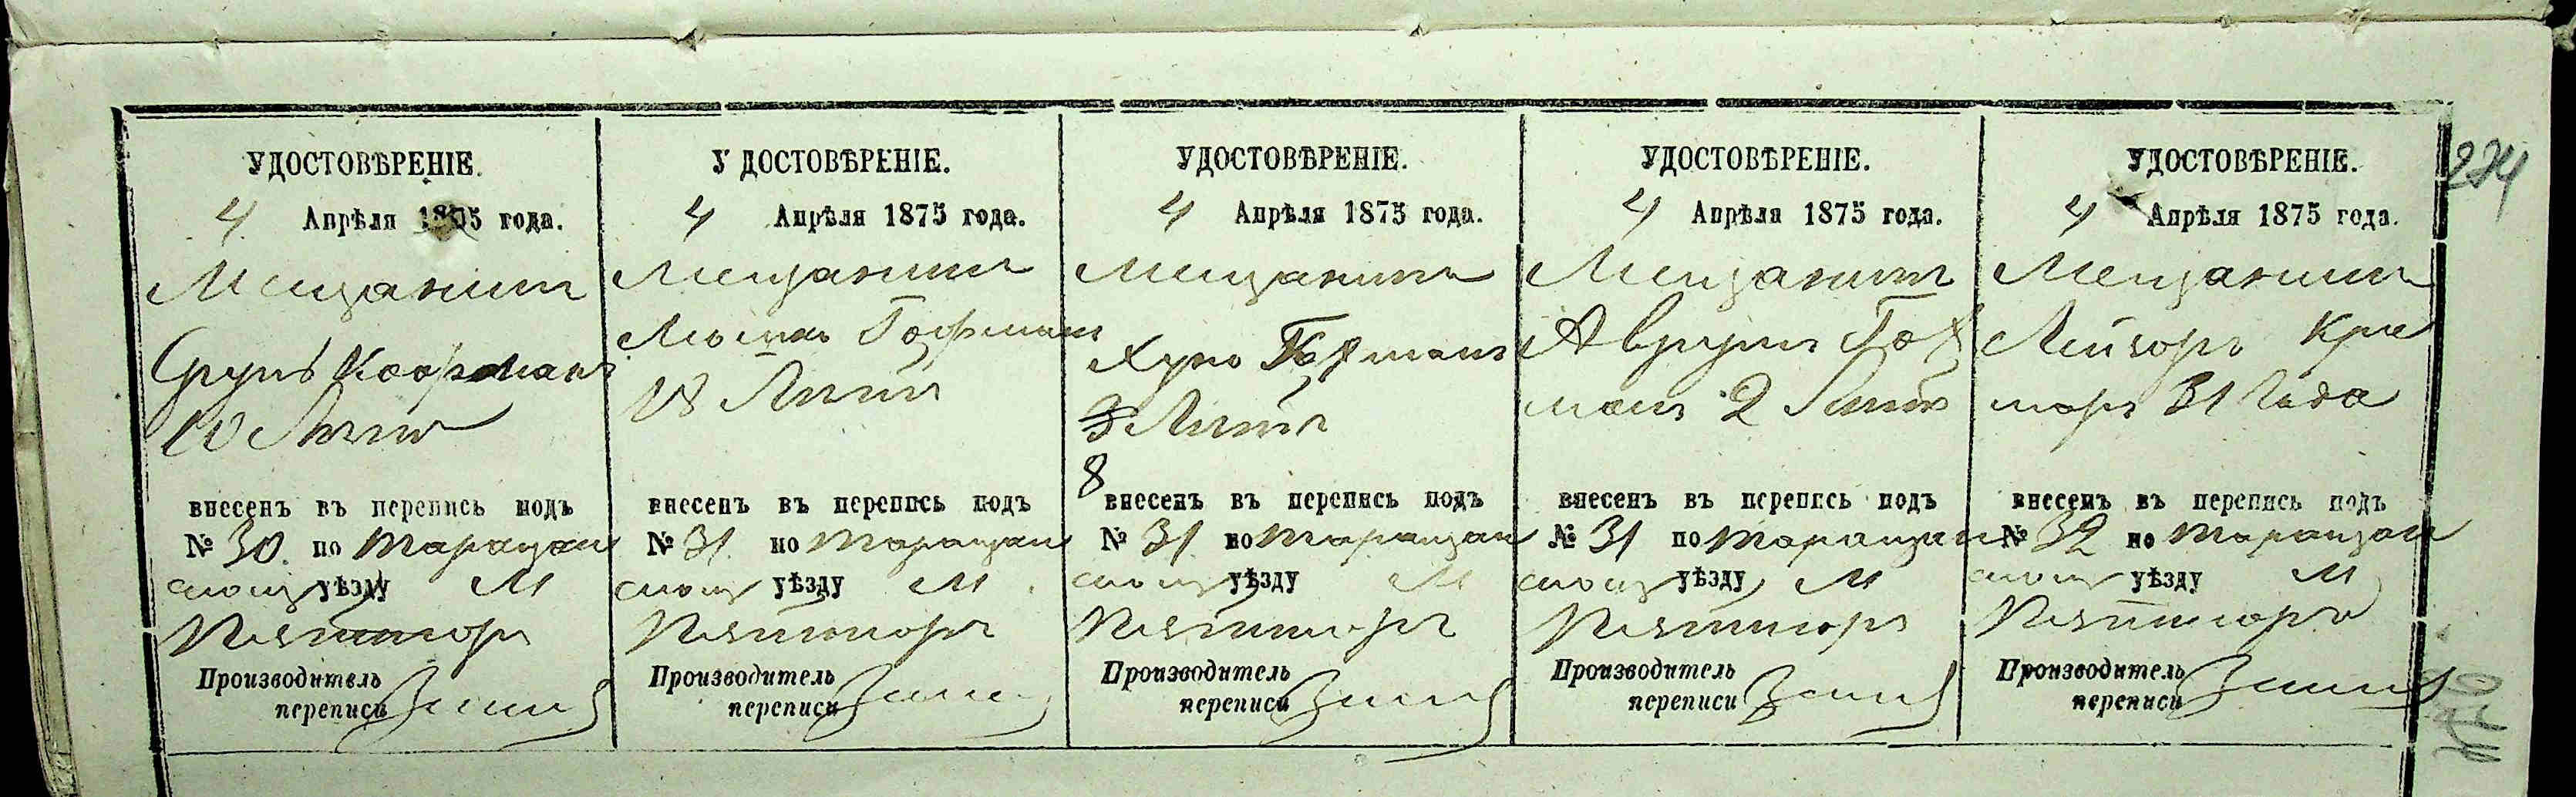 УДОСТОВѢРЕНІЕ.
4 Апрѣля 1875 года.
Мещанинъ
Срулъ
10 Лѣтъ
внесенъ въ перепись подъ
№ 30. по Таращан
скому уѣзду М
Пятигоръ
Производитель
переписи
У ДОСТОВѢРЕНІЕ.
4 Апрѣля 1875 года.
Мещанинъ
Гофманъ
18 Лѣтъ
внесенъ въ перепись подъ
№ 31. по Таращан
скому уѣзду М
Пятигоръ
Производитель
переписи
УДОСТОВѢРЕНІЕ.
4 Апрѣля 1875 года.
Мещанинъ
Гофманъ
Лѣтъ
8
внесенъ въ перепись подъ
№ 31. по Таращан
скому уѣзду М
Пятигоръ
Производитель
переписи
УДОСТОВѢРЕНІЕ.
4 Апрѣля 1875 года.
Мещанинъ
Аврумъ Гоф
манъ 2 Лѣтъ
внесенъ въ перепись подъ
№ 31 по Таращан
скому уѣзду М
Пятигоръ
Производитель
переписи
УДОСТОВѢРЕНІЕ.
4 Апрѣля 1875 года.
Мещанинъ
Лейзоръ Кра
маръ 31 Года
внесенъ въ перепись подъ
№ 32 по Таращан
скому уѣзду М
Пятигоръ
Производитель
переписи
274